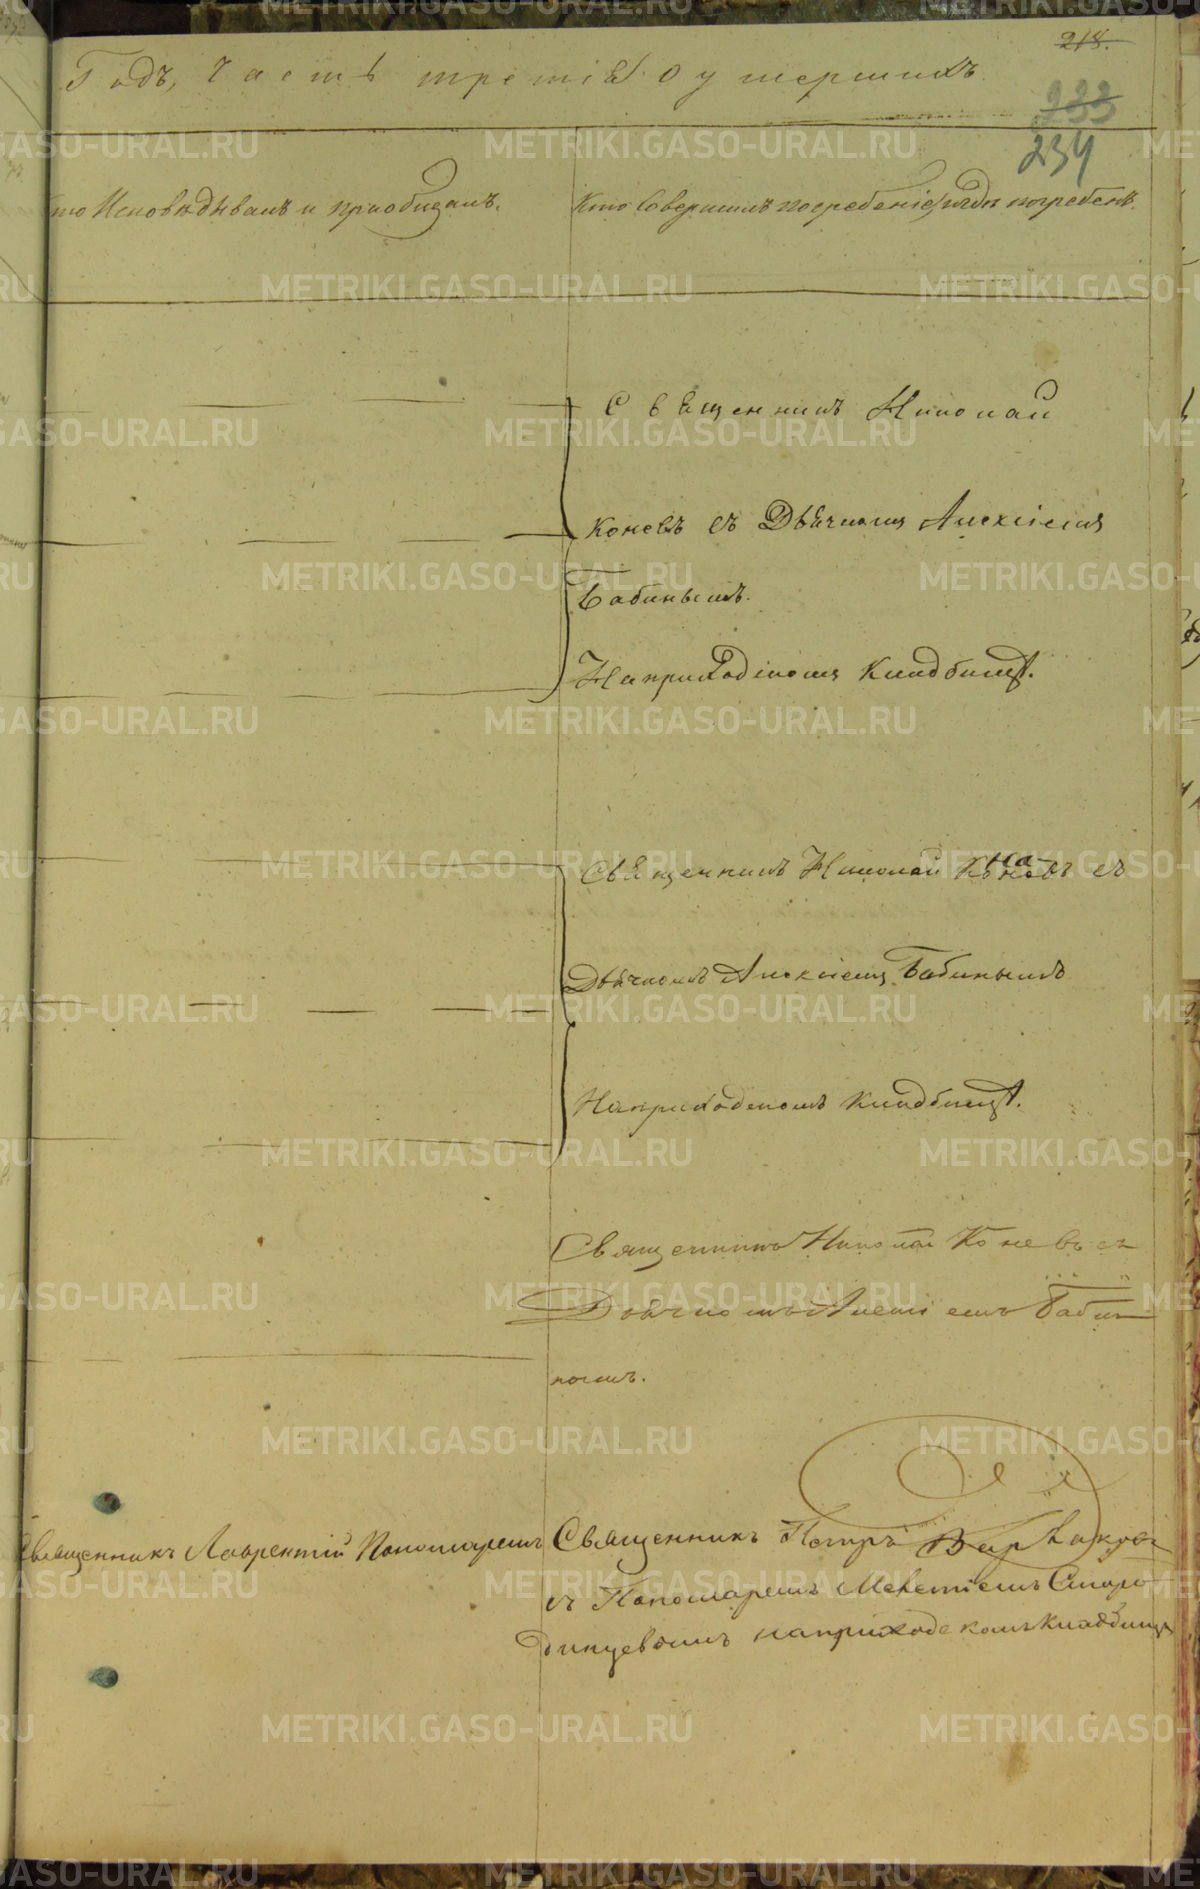 218.
Годъ, Часть третія О умершихъ.
233
234
то Исповѣдывалъ и пріобщалъ.
Кто Совершилъ погребеніе, и гдѣ погребенъ.
Священникъ Николай
Коневъ съ Дьячкомъ Алексіемъ
Бабинымъ.
На приходскомъ кладбищѣ.
Священникъ Николай съ
Дьячкомъ Алексіемъ Бабинымъ
На приходскомъ кладбищѣ.
Священникъ Николай Коневъ съ
Дьячкомъ Алексіемъ Баби-
нымъ.
Священникъ Лаврентій Пономаревъ
Священникъ Петръ
съ Пономаремъ Мелетіемъ Старо-
динцевымъ на приходскомъ кладбищѣ
METRIKI.GASO-URAL.RU